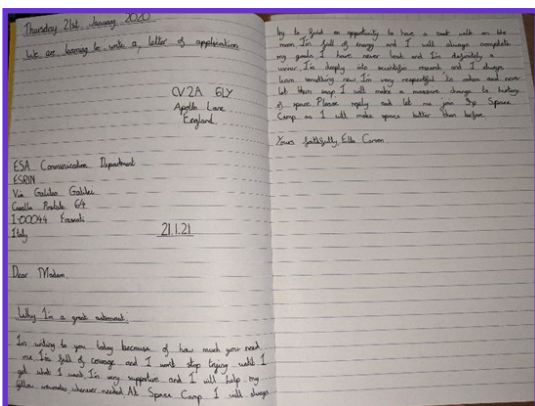 Thursday 21st January 2020
We are learning to write a letter of application
CV2A 6LY
Apollo Lane
England
ESA Communication Department
ESRIN
Via Galileo Galilei
Casella Postale 64
I-00044 Frascati
Italy
21.1.21
Dear Madam,
Why I'm a great astronaut:
I'm writing to you today because of how much you need
me. I'm full of courage and I won't stop trying until I
get what I want. I'm very supportive and I will help my
fellow whenever needed. At Space Camp I will always
try to find an opportunity to have a walk on the
moon. I'm full of energy and I will always complete
my goals. I have never lost and I'm definitely a
winner. I'm deeply into scientific research and I always
learn something new. I'm very respectful to others and never
let them I will make a massive change to history
of space. Please reply and let me join Space
Camp as I will make space better than before.
Yours faithfully, Ella